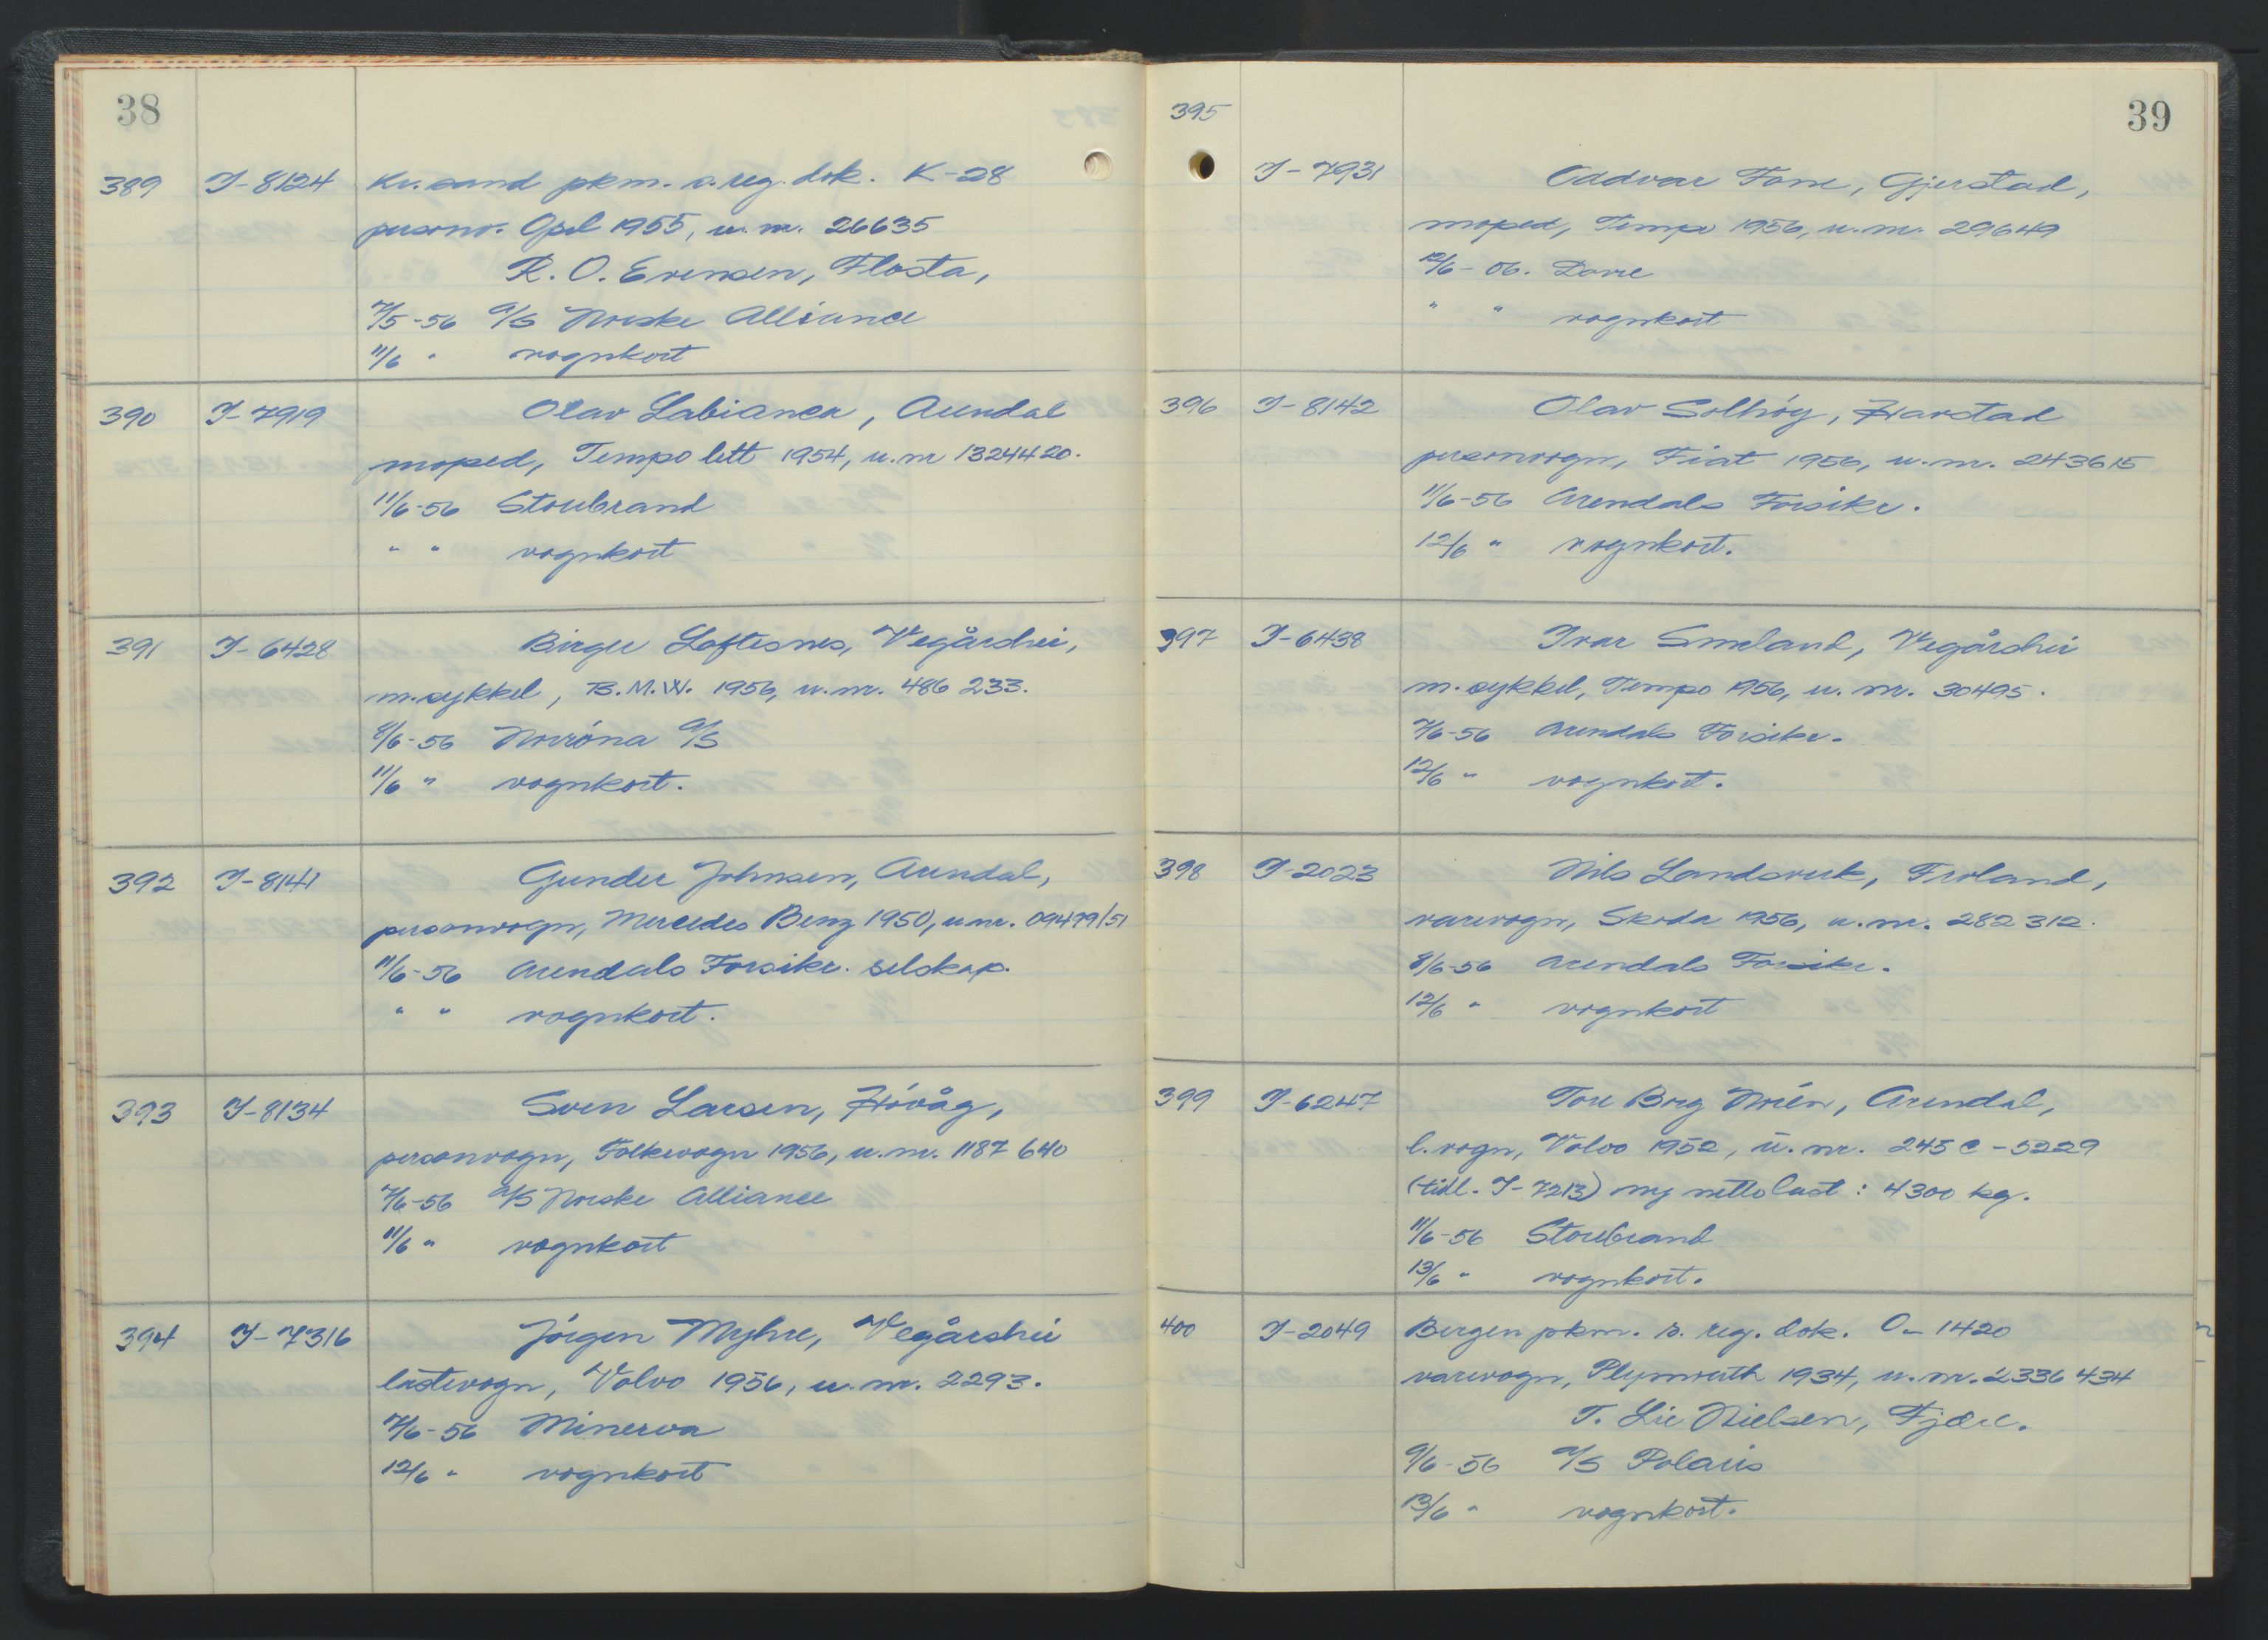 38
389 I-8124 Kr.sand pkm. s. reg. dok. K-28
personv. Opel 1955, u. nr. 26635
R. O. Evensen, Flosta,
7/5-56 A/S Norske Alliance
11/6 " vognkort
390 I-7919 Olav Labianca, Arendal
moped, Tempo lett 1954, u.nr 1324420.
11/6-56 Storebrand
" " vognkort
391 I-6428 Birger Loftesnes, Vegårshei,
m.sykkel, B.M.W. 1956, u. nr. 486 233.
8/6-56 Norróna A/S
11/6 " vognkort.
392 I-8141 Gunder Johnsen, Arendal,
personvogn, Mercedes Benz 1950, u.nr. 09499/51
11/6-56 Arendals Forsikr. selskap.
" " vognkort.
393 I-8134 Sven Larsen, Hóvåg,
personvogn, Folkevogn 1956, u. nr. 1187 640
7/6-56 A/S Norske Alliance
11/6 " vognkort
394 I-7316 Jórgen Myhre, Vegårshei
lastevogn, Volvo 1956, u. nr. 2293.
7/6-56 Minerva
12/6 " vognkort
39
395 I-7931 Oddvar Fone, Gjerstad,
moped, Tempo 1956, u. nr. 29649
12/6-56. Dovre
" " vognkort
396 I-8142 Olav Solhóy, Harstad
personvogn, Fiat 1956, u. nr. 243615
11/6-56 Arendals Forsikr.
12/6 " vognkort.
397 I-6438 Ivar Smeland, Vegårshei
m. sykkel, Tempo 1956, u. nr. 30495.
7/6-56 Arendals Forsikr.
12/6 " vognkort.
398 I-2023 Nils Landsverk, Froland,
varevogn, Skoda 1956, u. nr. 282 312.
8/6-56 Arendals Forsikr.
12/6 " vognkort
399 I-6247 Tore Borg Norén, Arendal,
l.vogn, Volvo 1952, u. nr. 245 C-5229
(tidl. I-7213) ny nettolast: 4300 kg.
11/6-56 Storebrand
13/6 " vognkort.
400 I-2049 Bergen pkm. s. reg. dok. O-1420
varevogn, Plymouth 1934, u. nr. 2336 434
T. Lie Nielsen, Fjære.
9/6-56 A/S Polaris
13/6 " vognkort.